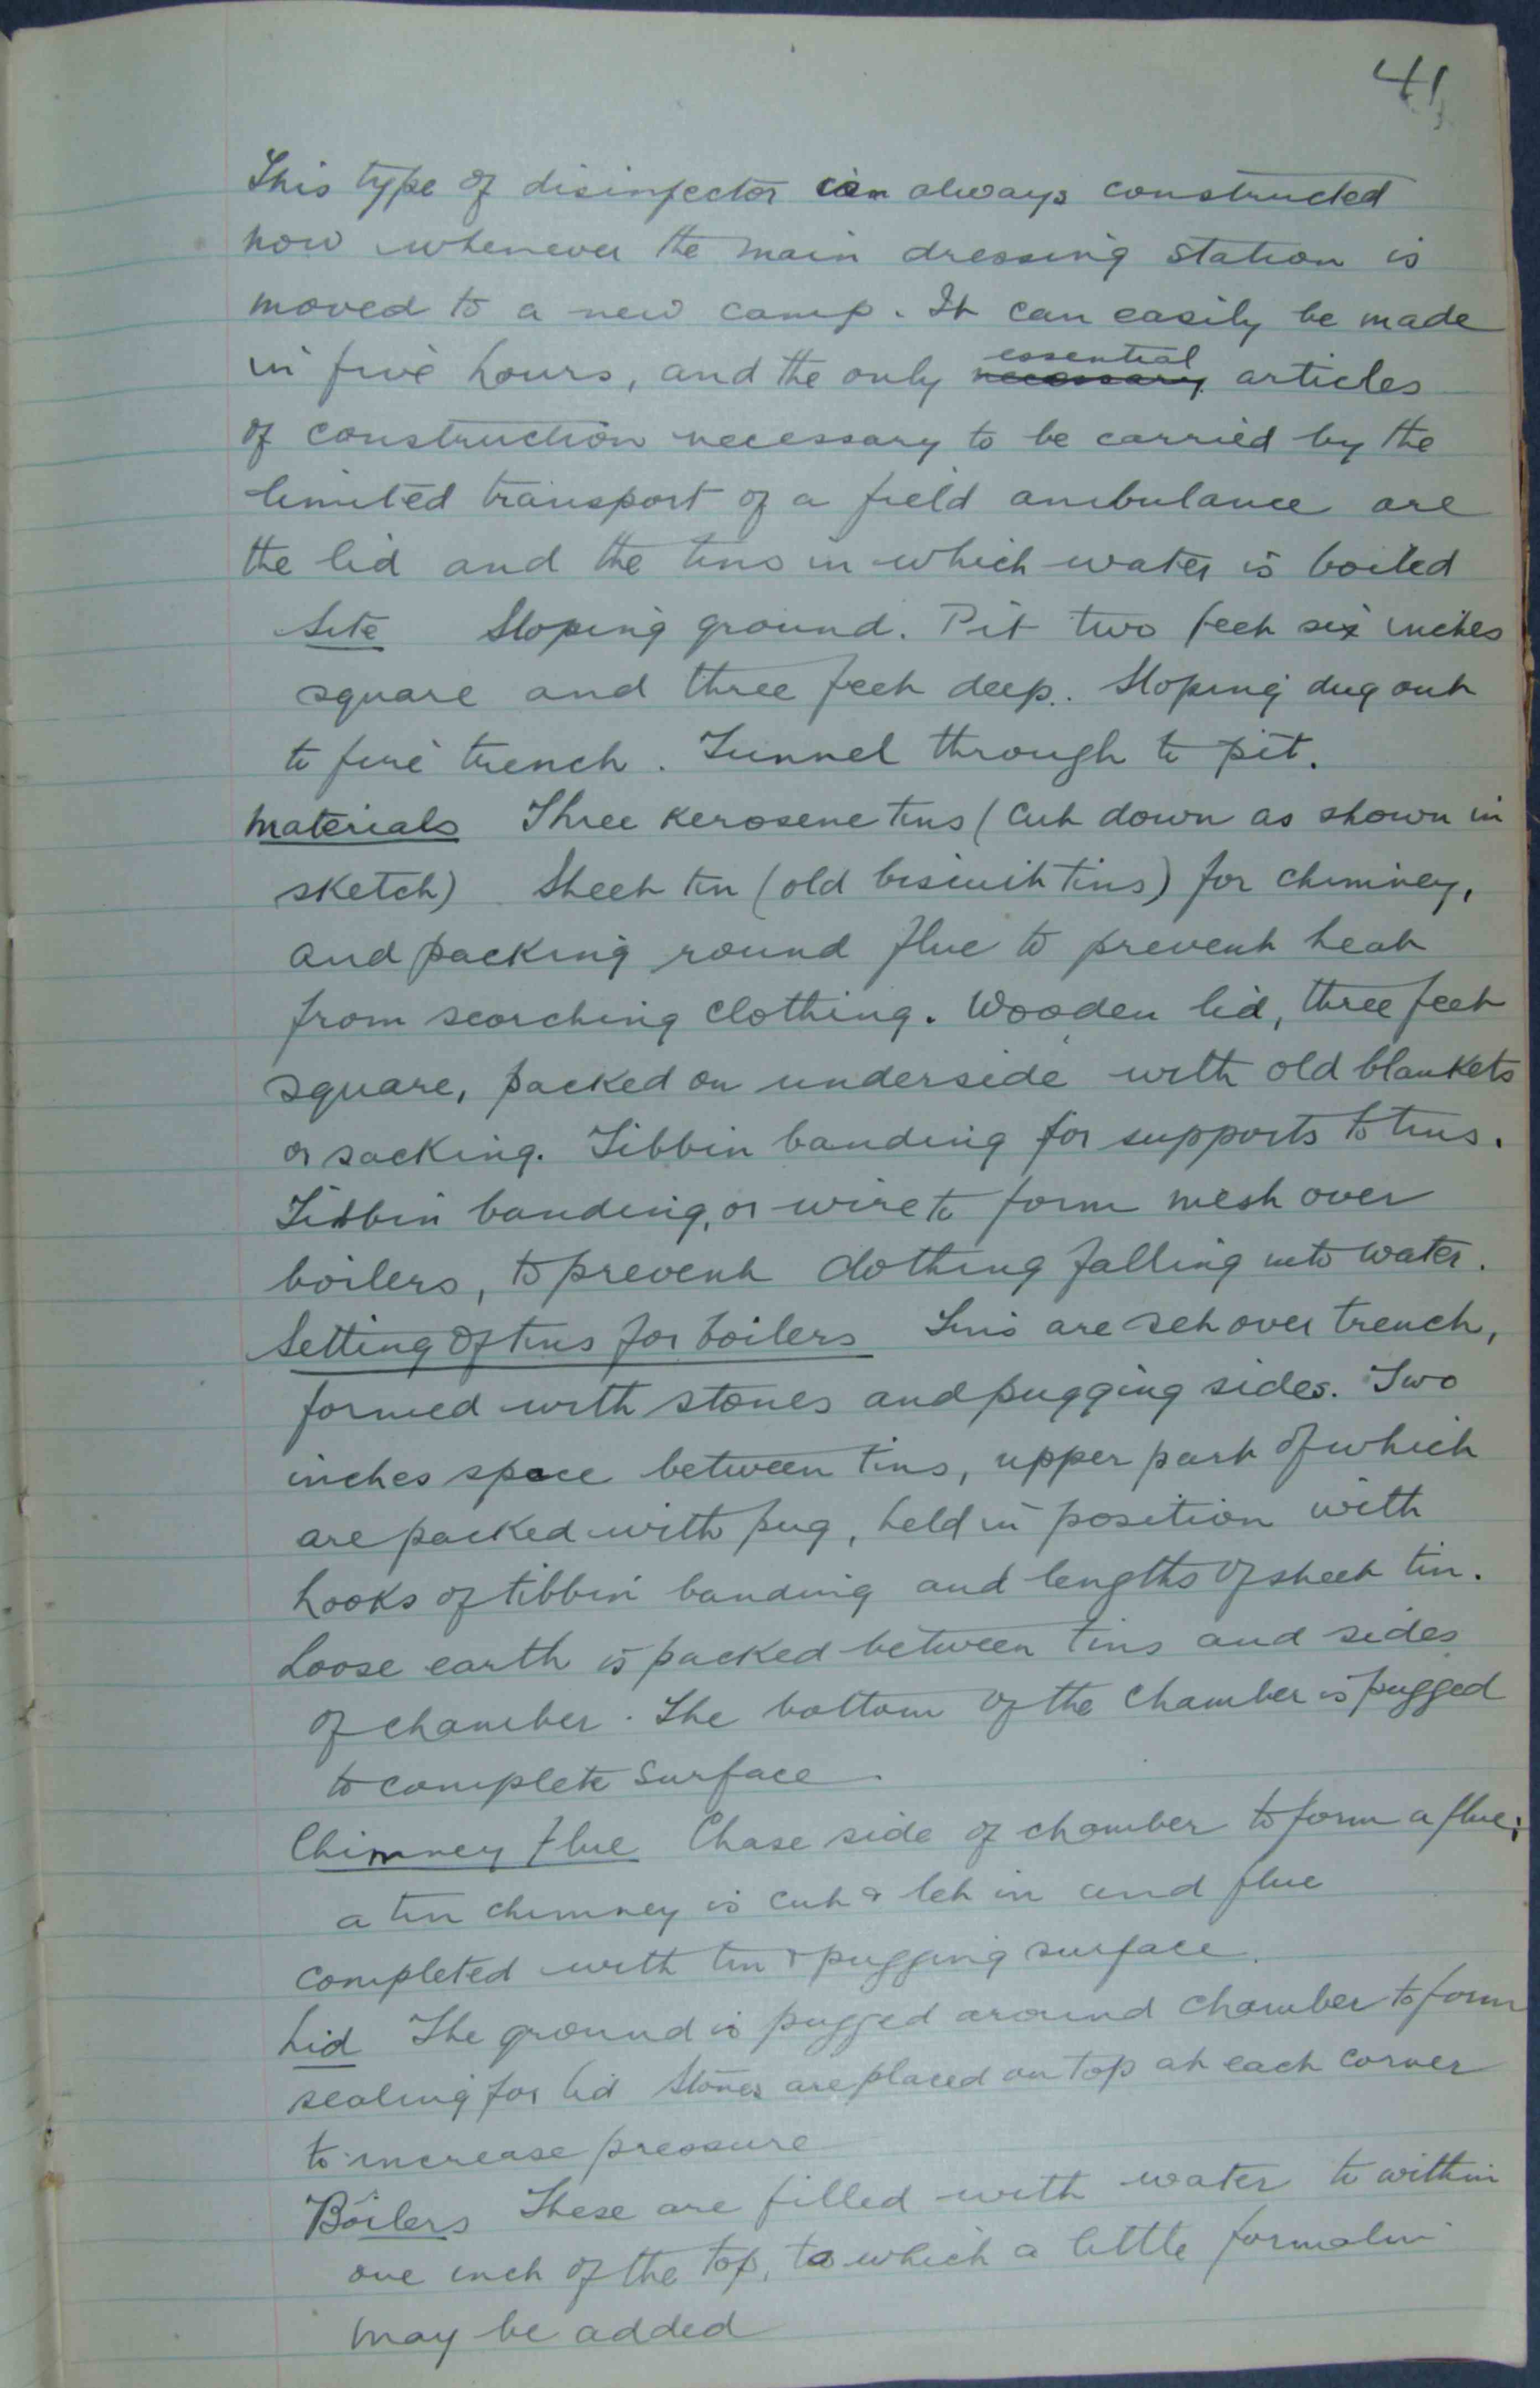 41
This type of disinfector is always constructed
now whenever the main dressing station is
moved to a new camp. It can easily be made
in five hours, and the only necessary essential articles
of construction necessary to be carried by the
limited transport of a field ambulance are
the lid and the tins in which water is boiled
Site Sloping ground. Pit two feet six inches
square and three feet deep. Sloping dug out
to fire trench. Tunnel through to pit.
Materials Three kerosene tins (cut down as shown in
sketch) Sheet tin (old biscuit tins) for chimney,
and packing round flue to prevent heat
from scorching clothing. Wooden lid, three feet
square, packed on underside with old blankets
or sacking. Tibbin banding for supports to tins.
Tibbin banding, or wire to form mesh over
boilers, to prevent clothing falling into water.
Setting of tins for boilers Tins are set over trench,
formed with stones and pugging sides. Two
inches space between tins, upper part of which
are packed with pug, held in position with
hooks of tibbin banding and lengths of sheet tin.
Loose earth is packed between tins and sides
of chamber. The bottom of the chamber is pugged
to complete surface.
Chimney flue Chase side of chamber to form a flue;
a tin chimney is cut & let in and flue
completed with tin & pugging surface.
Lid The ground is pugged around chamber to form
sealing for lid Stones are placed on top at each corner
to increase pressure
Boilers These are filled with water to within
one inch of the top, to which a little formalin
may be added